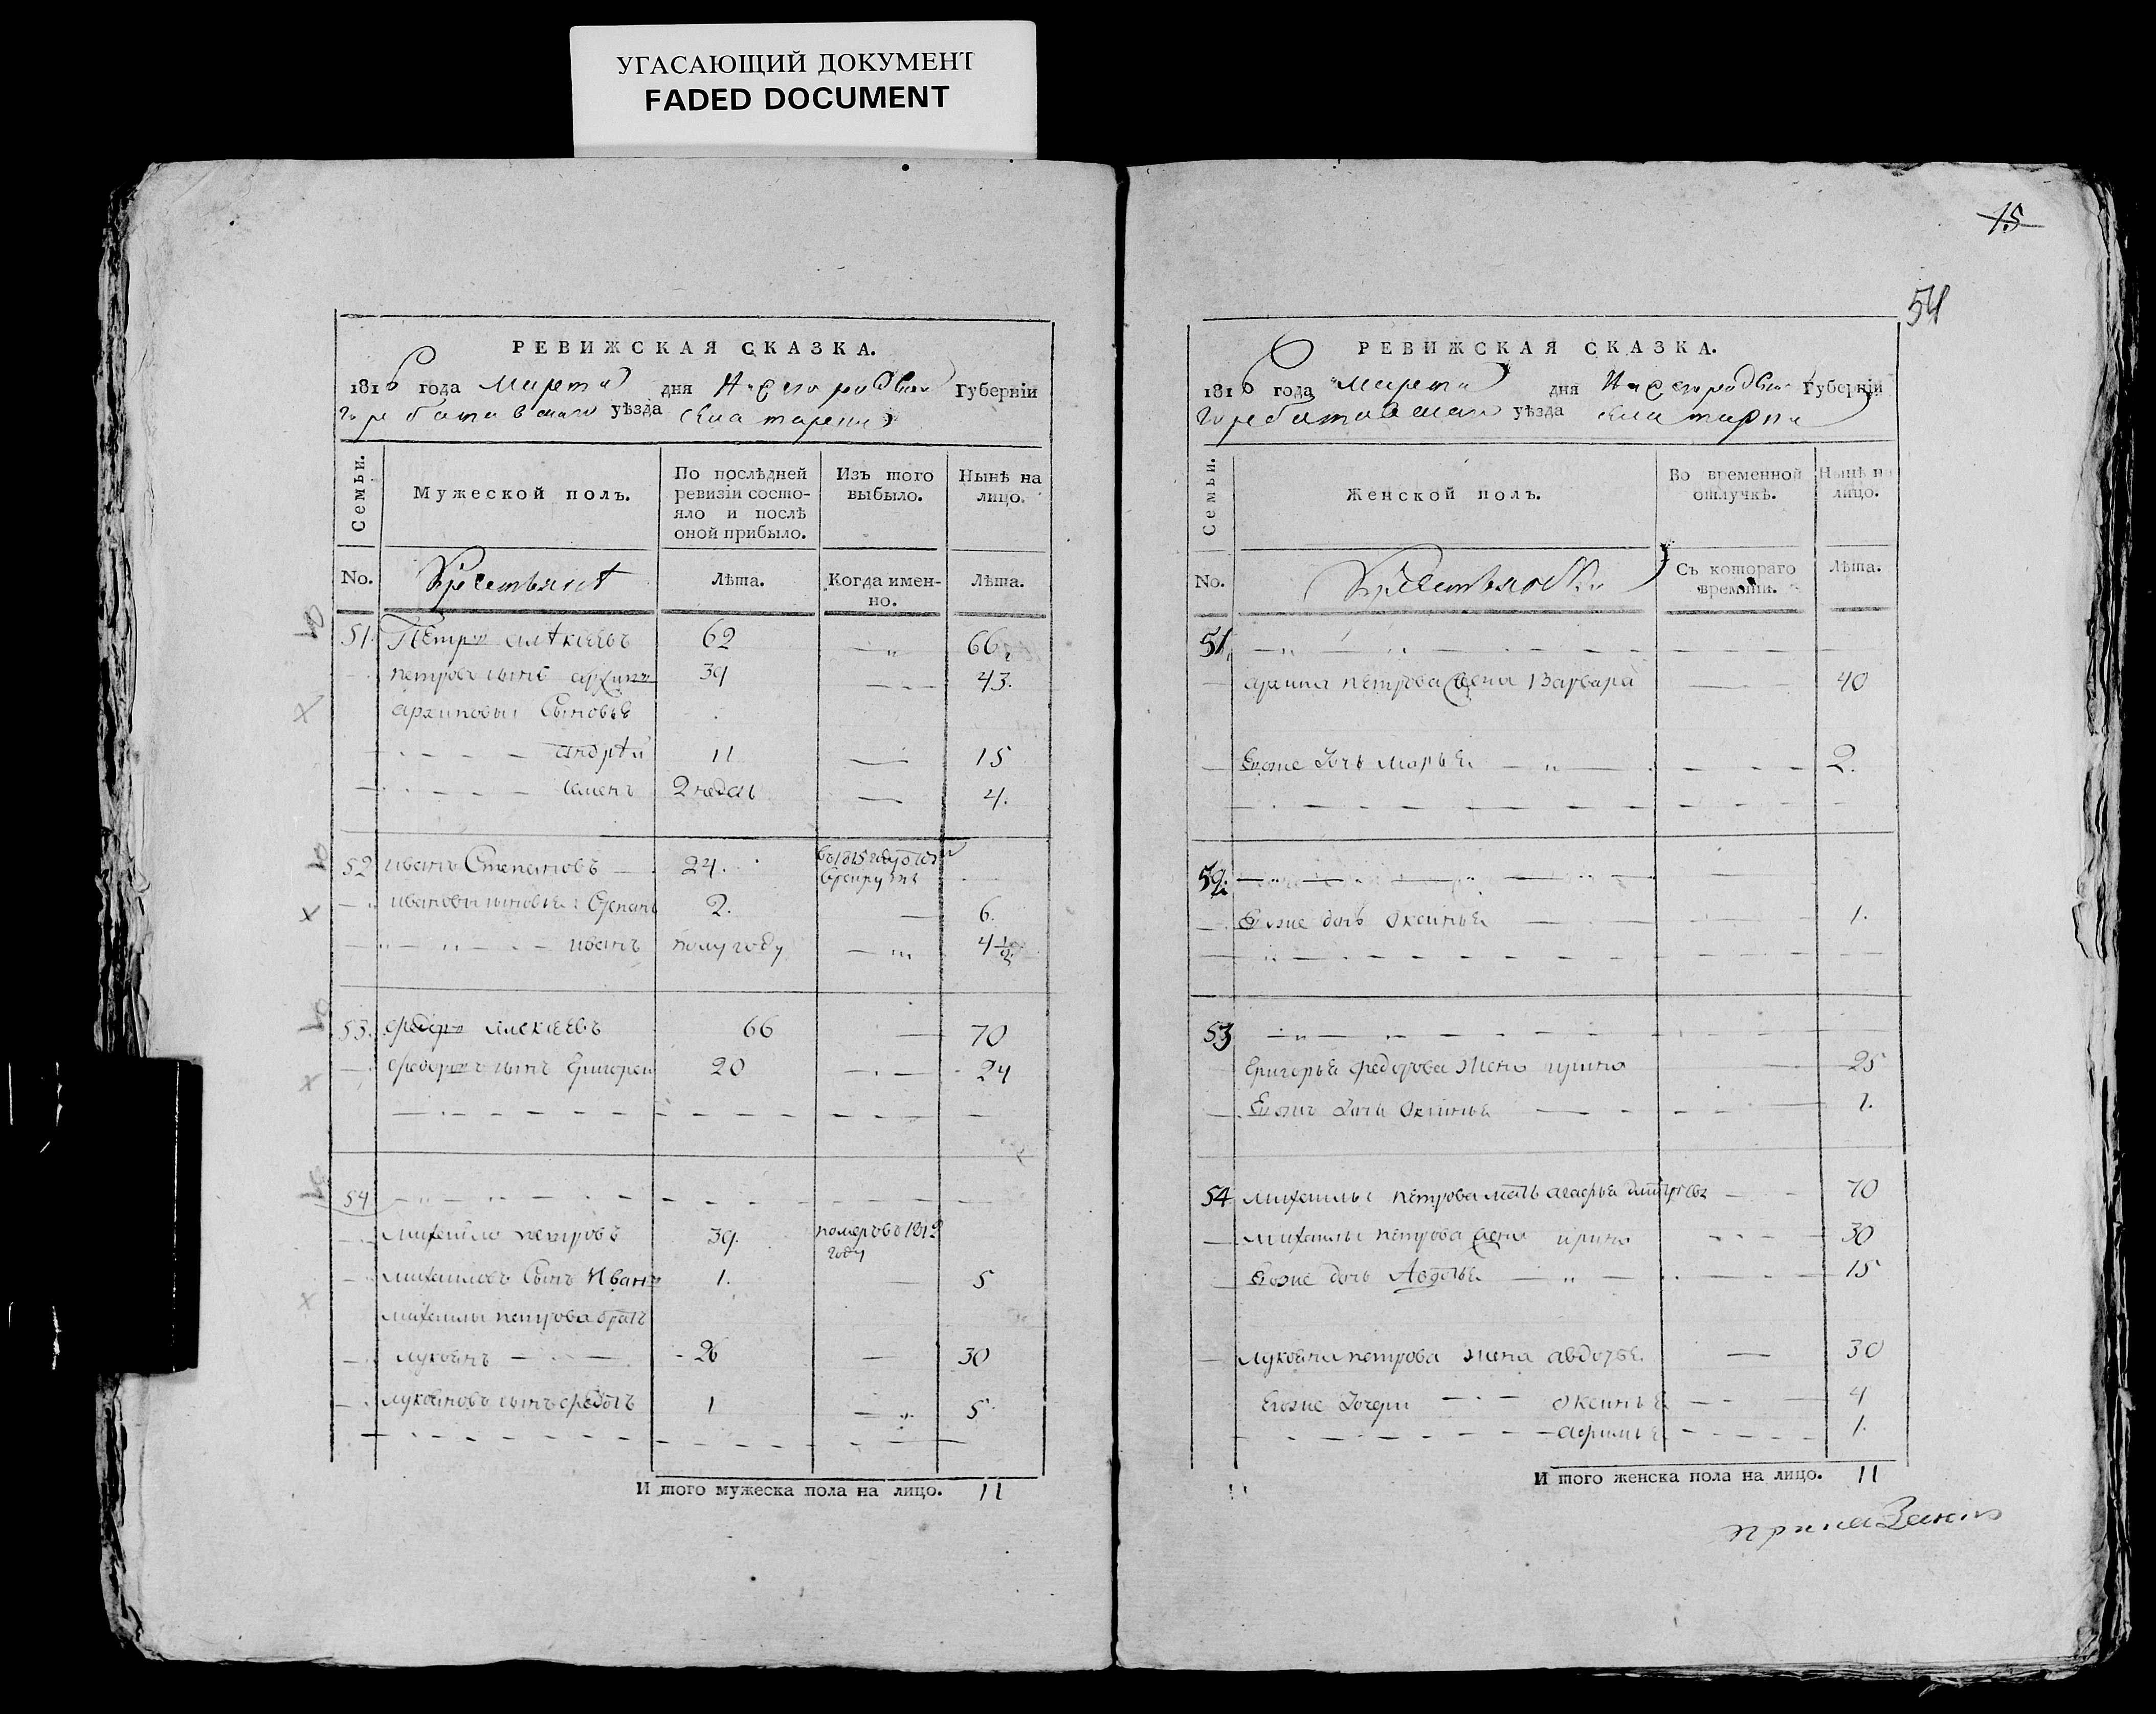 УГАСАЮЩИЙ ДОКУМЕНТ
FADED DOCUMENT
РЕВИЖСКАЯ СКАЗКА.
1816 года Марта дня Нижегородской Губерніи
Горбатовскаго уѣзда
Семьи.
Мужеской полъ.
По послѣдней ревизіи состо-
яло и послѣ
оной прибыло.
Изъ того выбыло.
Нынѣ на лицо.
No.
Крестьянѣ
Лѣта.
Когда имен-
но.
Лѣта.
51. Петръ алѣкѣевъ 62 66
петровъ сынъ архипъ 39 43.
архиповы Сыновьѣ
андрѣй 11 15
семенъ 2 недель 4.
52 иванъ Степановъ 24. въ 1815 году отданъ
врекруты
ивановы сыновьѣ Степанъ 2. 6.
иванъ полугоду 4 1/2
53. федоръ алексѣевъ 66 70
федоровъ сынъ Григореи 20 24
54
михайло петровъ 39. померъ въ 1812
году
михаиловъ Сынъ Иванъ 1. 5
михаилы петрова братъ
лукоянъ 26 30
лукояновъ сынъ федотъ 1 5
И того мужеска пола на лицо. 11
15
54
РЕВИЖСКАЯ СКАЗКА.
1816 года Марта дня Нижегородской Губерніи
Горбатовскаго уѣзда
Семьи.
Женской полъ.
Во временной отлучкѣ.
Нынѣ на лицо.
No.
Крестьянски
Съ котораго времяни.
Лѣта.
51.
архипа петрова жена Варвара 40
Евоже дочь марьѣ 2.
52.
Евоже дочь Оксиньѣ 1.
53
Григорьѣ федорова жена ирина 25
Евоже дочь Оксиньѣ 1.
54 михаилы петрова мать агафья 70
михаилы петрова жена ирина 30
Евоже дочь Авдотьѣ 15
лукояна петрова жена авдотьѣ 30
Евоже дочери оксиньѣ 4
афимьѣ 1.
И того женска пола на лицо. 11